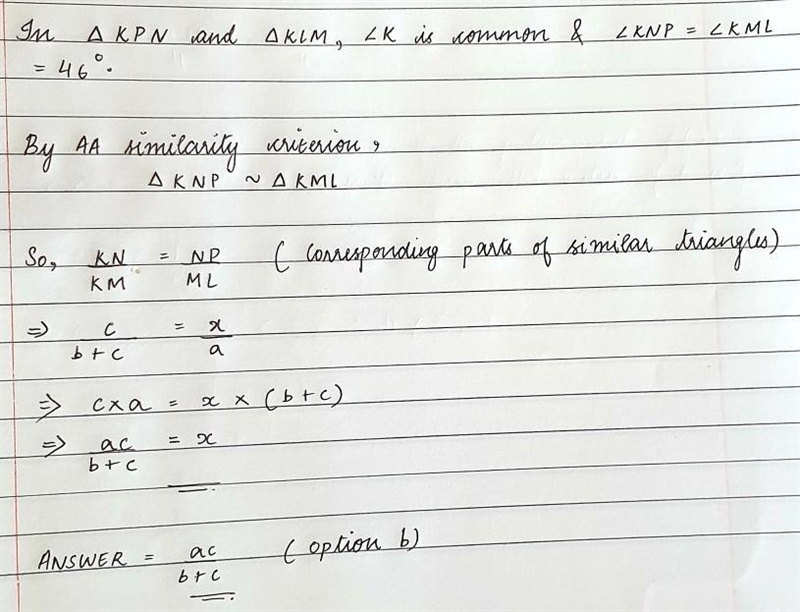 In Δ KPN and ΔKLM, ∠K is common & ∠KNP = ∠KML
= 46°.
By AA similarity criterion,
Δ KNP ~ Δ KML
So, KN/KM = NP/ML ( Corresponding parts of similar triangles)
⇒ c/b+c = x/a
⇒ c×a = x × (b+c)
⇒ ac/b+c = x
ANSWER = ac/b+c ( option b)